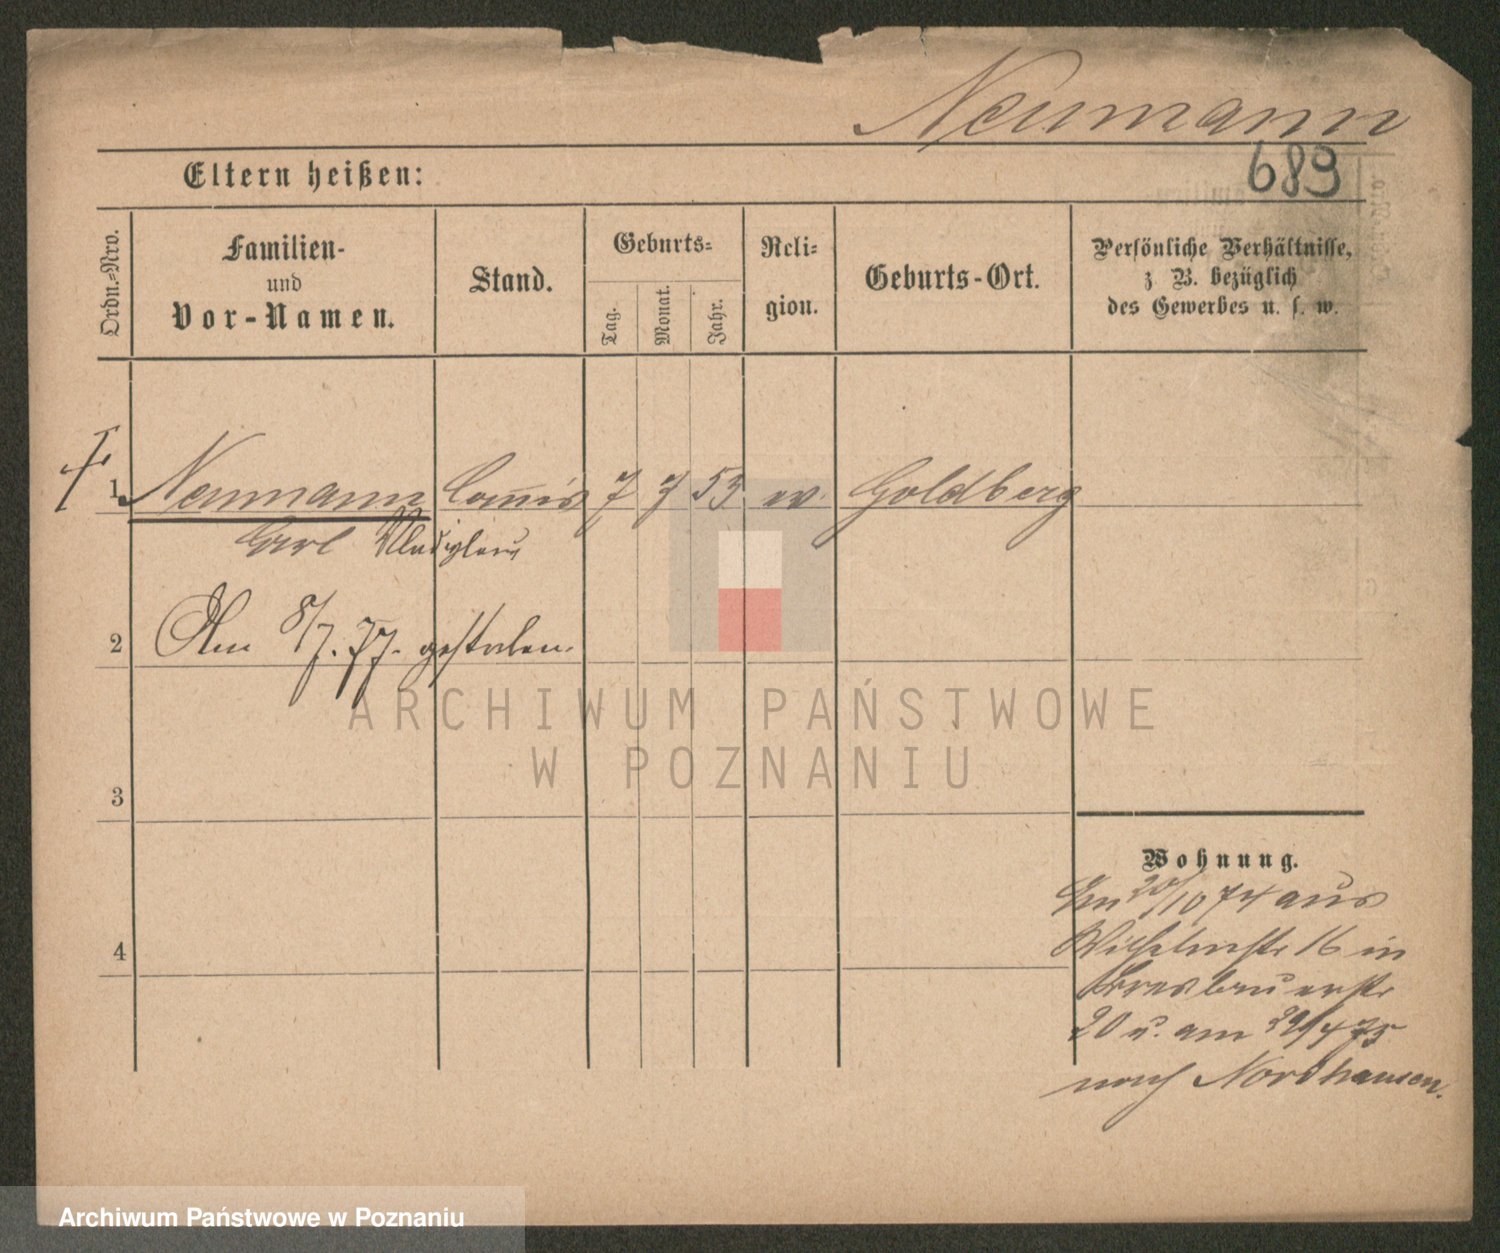 Neumann
689
Eltern heißen:
Ordn.-Nro.
Familien-
und
Vor-Namen.
Stand.
Geburts-
Tag.
Monat.
Jahr.
Reli-
gion.
Geburts-Ort.
Persönliche Verhältnisse,
z. B. bezüglich
des Gewerbes u. s. w.
1 Neumann Com̄is 7 7 53 ev. Goldberg
Carl Wladislaus
2 Am 8/7. 77. gestorben.
3
4
Wohnung.
Am 20/10 74 aus
Wilhelmstr 16 in
20 u. am 29/4 75
nach Nordhausen.
ARCHIWUM PAŃSTWOWE
W POZNANIU
Archiwum Państwowe w Poznaniu